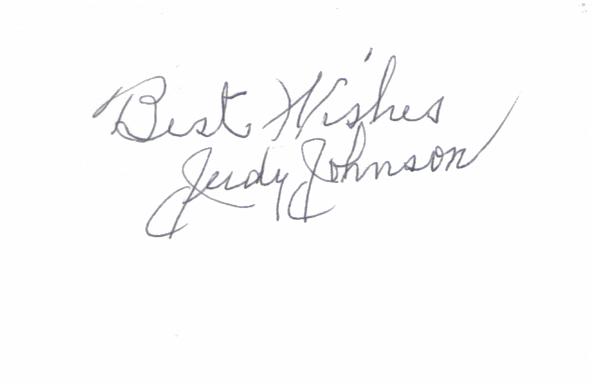 Best Wishes
Judy Johnson